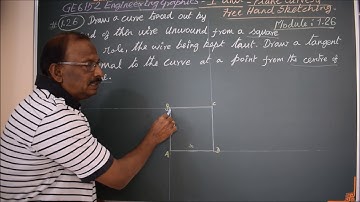 GE6152 Engineering Graphics - I Unit - Plane Curves &
Free Hand Sketching.
# 1.26 Draw a curve traced out by Module: 1.26
end of thin wire unwound from a square
Hole, the wire being kept taut. Draw a tangent
normal to the curve at a point from the centre of
C
A B